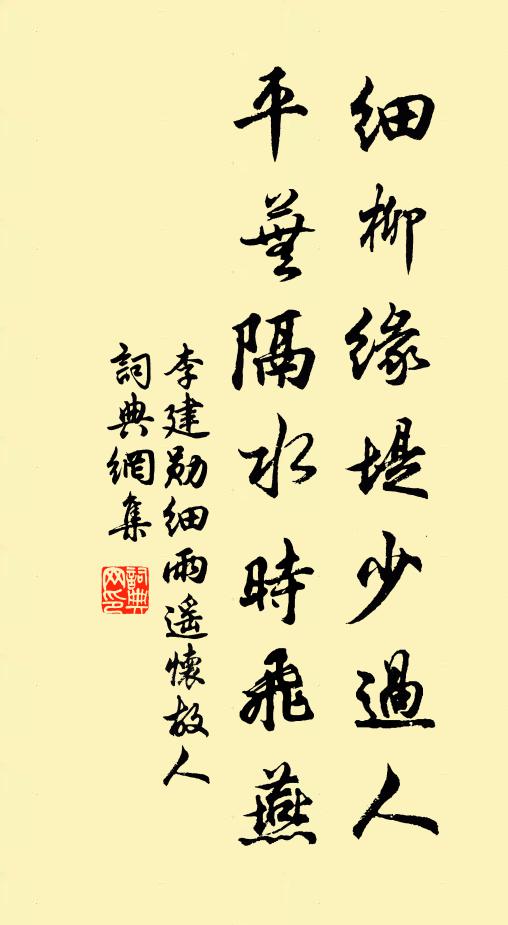 细柳缘堤少過人
平蕪隔水時飛燕
李建勋细雨遥懷故人
詞典網集
詞典
网印